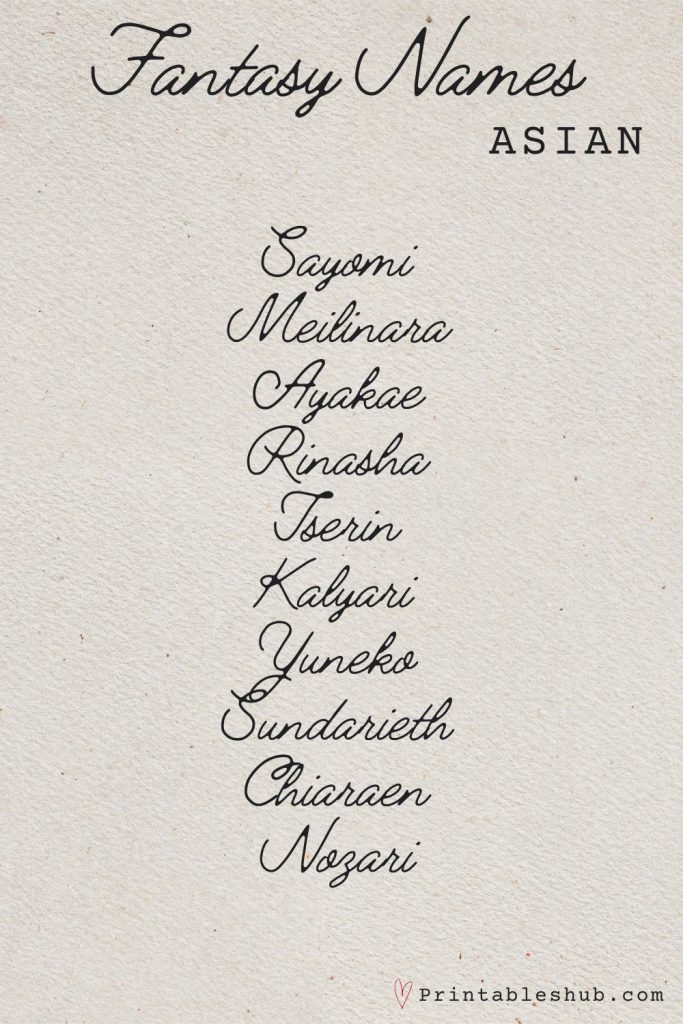 Fantasy Names
ASIAN
Sayomi
Meilinara
Ayakae
Rinasha
Tserin
Kalyari
Yuneko
Sundarieth
Chiaraen
Nozari
Printableshub.com